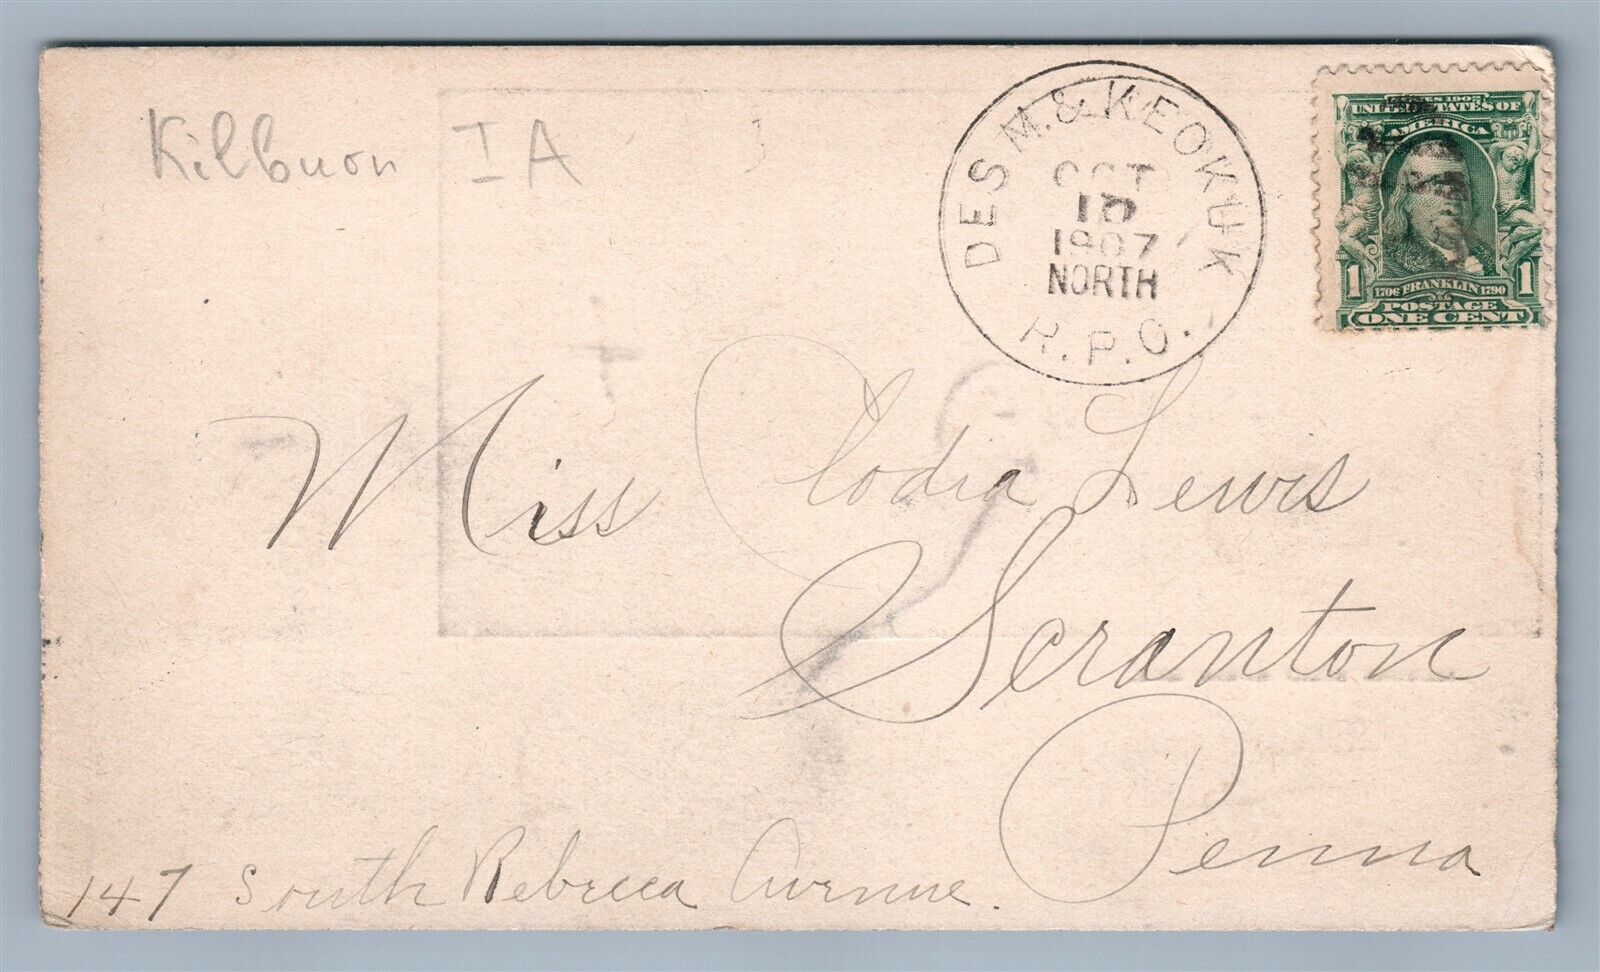 Kilbuorn IA
DES M. & KEOKUK
OCT
10
1907
NORTH
R.P.O.
SERIES 1902
UNITED STATES OF
AMERICA
1 1706 FRANKLIN 1790 1
POSTAGE
ONE CENT
Miss Clodia Lewis
Scranton
Penna
147 South Rebecca Avenue.